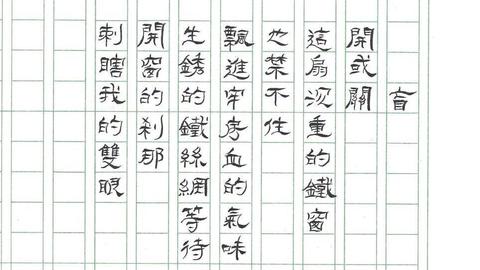 盲
開或關
這扇沉重的鐵窗
也禁不住
飄進牢房血的氣味
生銹的鐵絲網等待
開窗的剎那
刺瞎我的雙眼